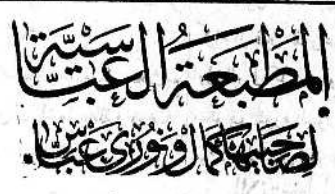 المَطْبَعَةُ العَبَّاسِيَّة
لصاحبيها كمال ونوري عباس